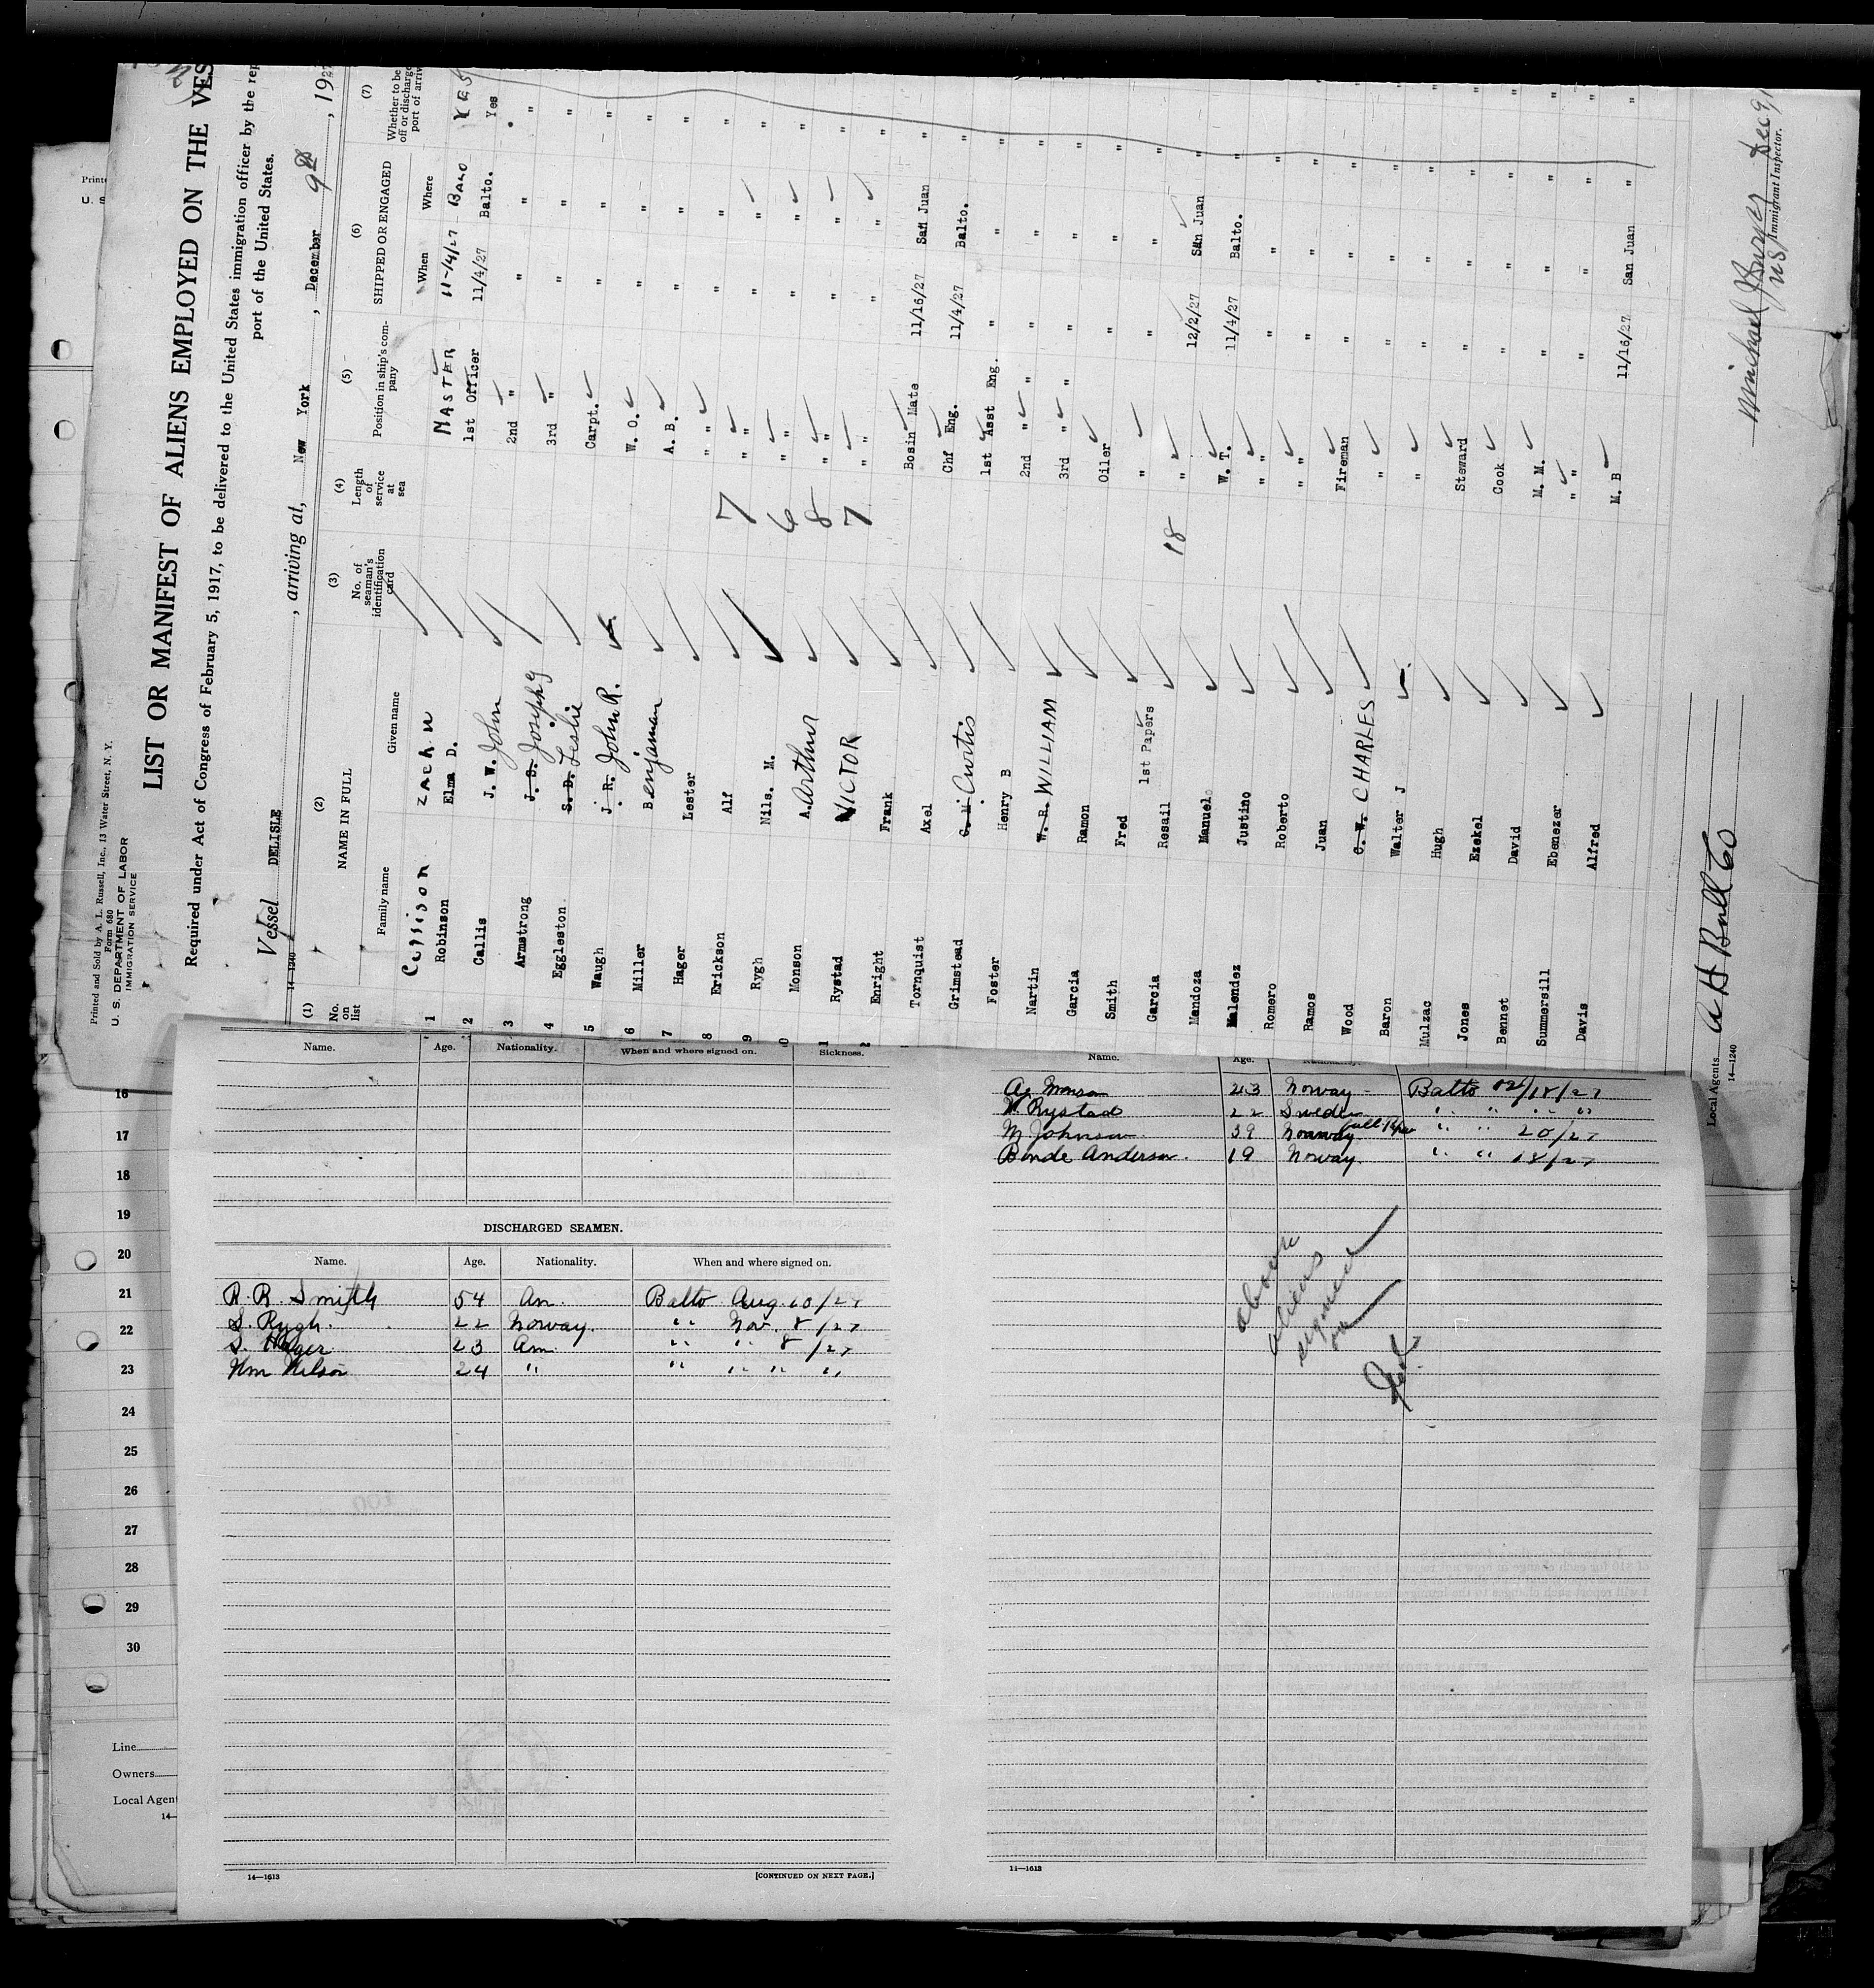 Printed and Sold by A. L. Russell, Inc., 13 Water Street, N. Y.
Form 680
U. S. DEPARTMENT OF LABOR
IMMIGRATION SERVICE
LIST OR MANIFEST OF ALIENS EMPLOYED ON THE VES
Required under Act of Congress of February 5, 1917, to be delivered to the United States immigration officer by the rep
port of the United States.
Vessel DELISLE , arriving at, New York , December 9th , 1927
14—1240
(1) (2) (3) (4) (5) (6) (7)
No. on list NAME IN FULL No. of seaman's identification card Length of service at sea Position in ship's company SHIPPED OR ENGAGED Whether to be off or discharge port of arriv
Family name Given name When Where
Collison Zach W MASTER 11-14/27 BALO YES
1 Robinson Elma D. 1st Officer 11/4/27 Balto. Yes
2 Callis J. W. John 2nd " " " "
3 Armstrong J. S. Joseph G 3rd " " " "
4 Eggleston S. D. Leslie Carpt. " " "
5 Waugh J. R. John R. W. O. " " "
6 Miller Benjaman A. B. " " "
7 Hager Lester " " " " "
8 Erickson Alf 7 " " " " "
9 Rygh Nils. M. 6 " " " " "
0 Monson A. Arthur 8 " " " " "
1 Rystad VICTOR 7 " " " " "
2 Enright Frank Bosin Mate " " "
Tornquist Axel Chf Eng. 11/16/27 San Juan "
Grimstead C. W. Curtis 1st Asst Eng. 11/4/27 Balto. "
Foster Henry B 2nd " " " " "
Martin W. R. WILLIAM 3rd " " " " "
Garcia Ramon Oiler " " "
Smith Fred " " " "
Garcia Resail 1st Papers 18 " " " "
Mandoza Manuel W. T. 12/2/27 San Juan "
Malendez Justino " " 11/4/27 Balto. "
Romero Roberto " " " " "
Ramos Juan Fireman " " "
Wood C. W. CHARLES " " " "
Baron Walter J " " " "
Mulzac Hugh Steward " " "
Jones Ezekel Cook " " "
Bennet David M. M. " " "
Summersill Ebenezer " " " " "
Davis Alfred M. B 11/16/27 San Juan "
Local Agents A H Bull Co
14—1240
Michael J Dec 9/
Immigrant Inspector.
Printe
U. S
Name. Age. Nationality. When and where signed on. Sickness.
DISCHARGED SEAMEN.
Name. Age. Nationality. When and where signed on.
R. R. Smith 54 Am. Balto Aug. 10/27
S. Rygh. 22 Norway. " Nov. 8/27
S. Hager 23 Am " " 8/27
Wm Wilson 24 " " " " "
14—1613 [CONTINUED ON NEXT PAGE.]
Name. Age. Nationality.
Monson 23 Norway - Balto 18/27
V. Rystad 22 Sweden " " " "
M Johnson 39 Norway " " 20/27
Bende Anderson. 19 Norway. " " 18/27
above
aliens
signed
on
11—1613
16
17
18
19
20
21
22
23
24
25
26
27
28
29
30
Line
Owners
Local Agent
14—